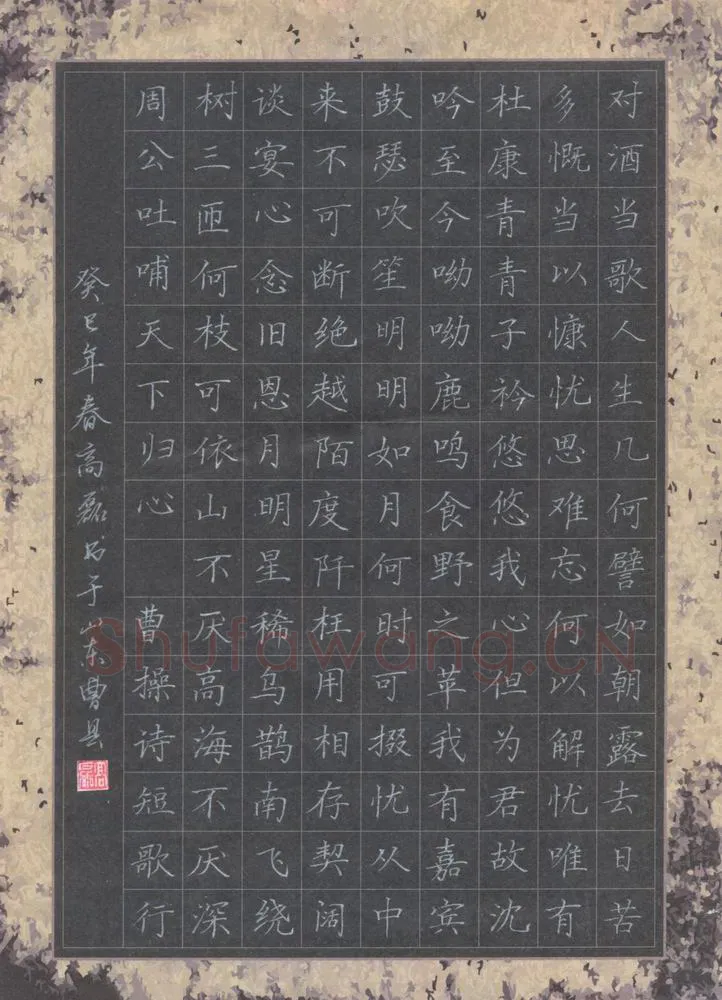 对酒当歌人生几何譬如朝露去日苦
多慨当以慷忧思难忘何以解忧唯有
杜康青青子衿悠悠我心但为君故沈
吟至今呦呦鹿鸣食野之苹我有嘉宾
鼓瑟吹笙明明如月何时可掇忧从中
来不可断绝越陌度阡枉用相存契阔
谈宴心念旧恩月明星稀乌鹊南飞绕
树三匝何枝可依山不厌高海不厌深
周公吐哺天下归心 曹操诗短歌行
癸巳年春高磊书于山东曹县
Shufawang.CN